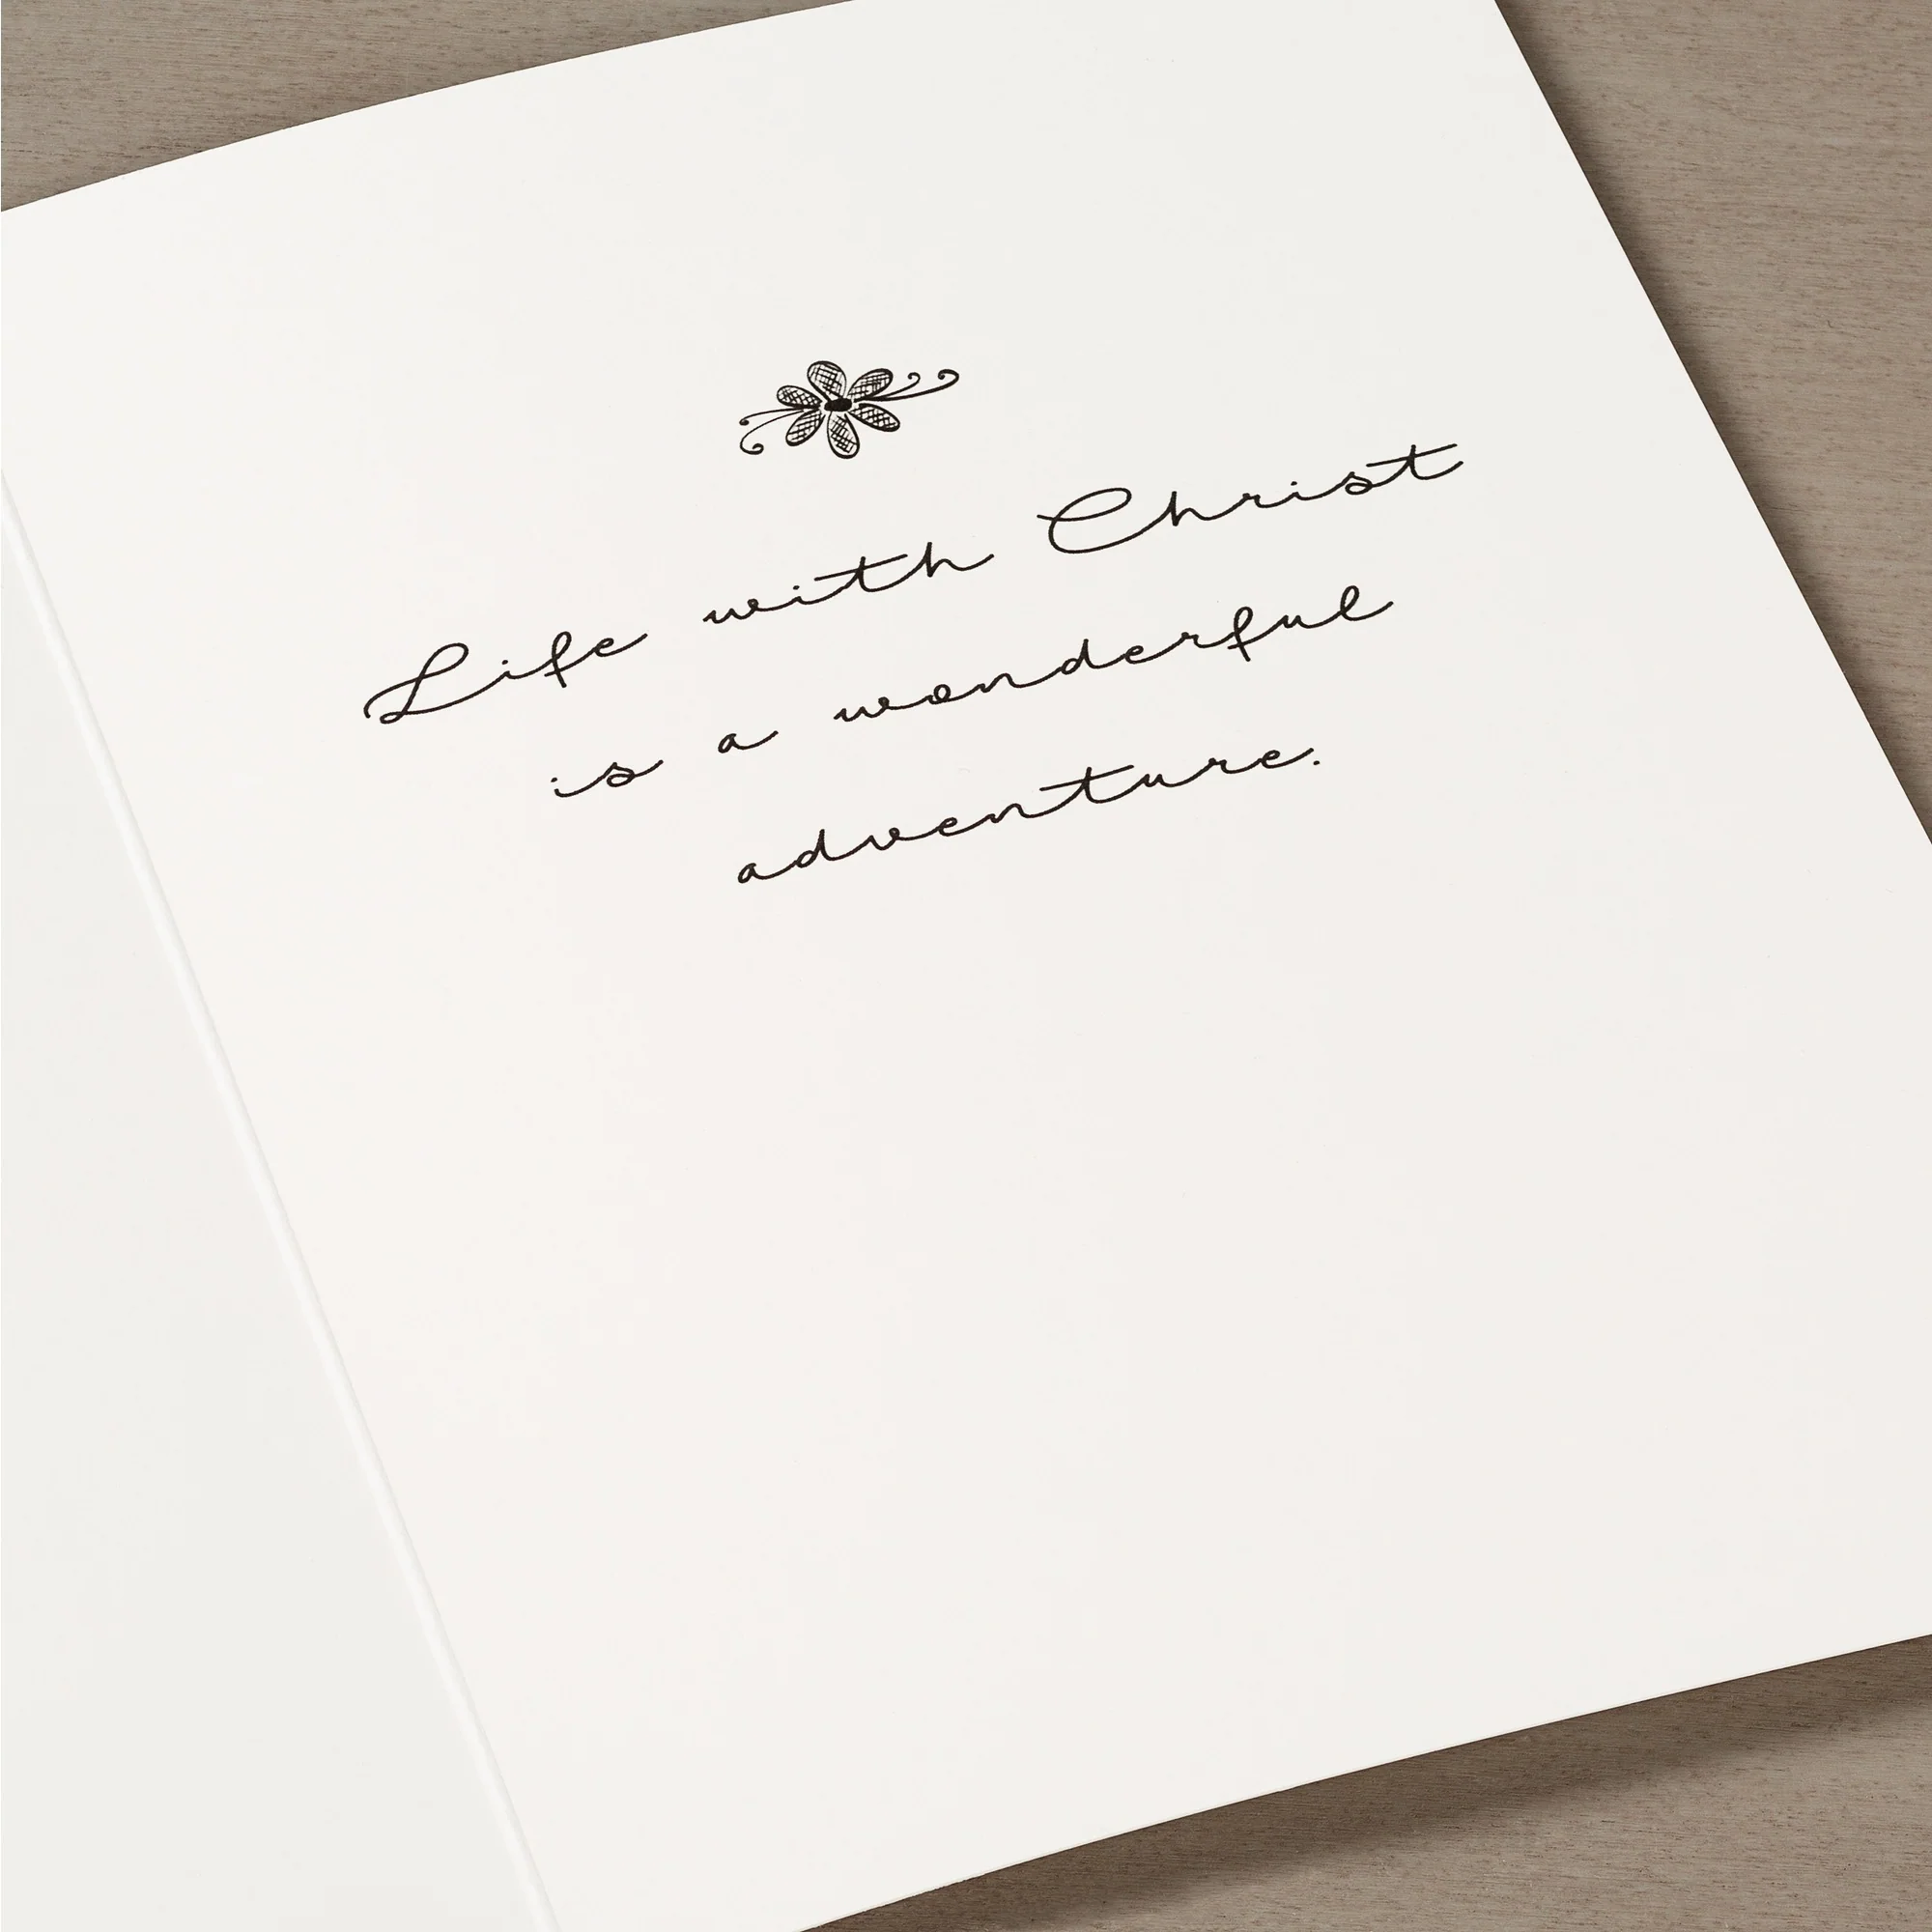 Life with Christ
is a wonderful
adventure.